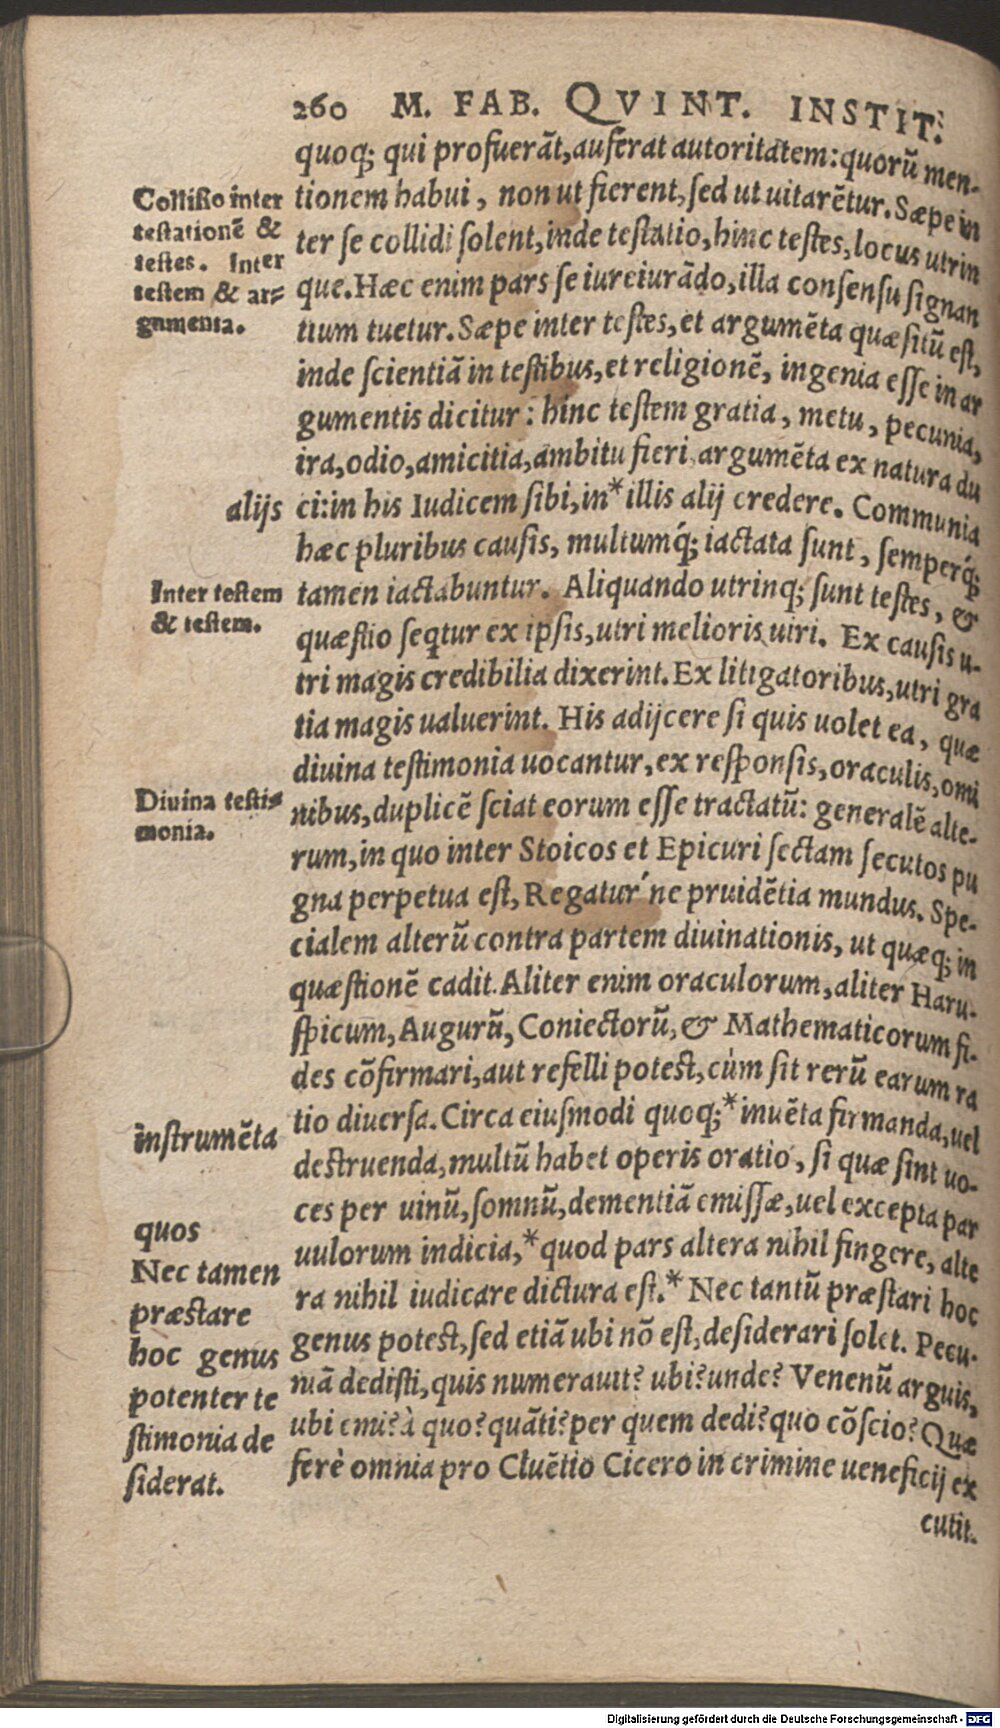 260 M. FAB. QVINT. INSTIT.
quoq; qui profuerāt, auferat autoritatem: quorū men-
tionem habui, non ut fierent, sed ut uitarētur. Sæpe in
ter se collidi solent, inde testatio, hinc testes, locus utrin
que. Hæc enim pars se iureiurādo, illa consensu signan
tium tuetur. Sæpe inter testes, et argumēta quæsitū est,
inde scientiā in testibus, et religionē, ingenia esse in ar
gumentis dicitur: hinc testem gratia, metu, pecunia,
ira, odio, amicitia, ambitu fieri, argumēta ex natura du
ci: in his Iudicem sibi, in * illis alij credere. Communia
hæc pluribus causis, multumq́; iactata sunt, semperq́;
tamen iactabuntur. Aliquando utrinq; sunt testes, &
quæstio seqtur ex ipsis, utri melioris uiri. Ex causis u-
tri magis credibilia dixerint. Ex litigatoribus, utri gra
tia magis ualuerint. His adijcere si quis uolet ea, quæ
diuina testimonia uocantur, ex responsis, oraculis, omi
nibus, duplicē sciat eorum esse tractatū: generalē alte-
rum, in quo inter Stoicos et Epicuri sectam secutos pu
gna perpetua est, Regatur´ne pruidētia mundus. Spe-
cialem alterū contra partem diuinationis, ut quæq; in
quæstionē cadit. Aliter enim oraculorum, aliter Haru-
spicum, Augurū, Coniectorū, & Mathematicorum fi-
des cōfirmari, aut refelli potest, cùm sit rerū earum ra
tio diuersa. Circa eiusmodi quoq; * inuēta firmanda, uel
destruenda, multū habet operis oratio, si quæ sint uo-
ces per uinū, somnū, dementiā emissæ, uel excepta par
uulorum indicia, * quod pars altera nihil fingere, alte
ra nihil iudicare dictura est. * Nec tantū præstari hoc
genus potest, sed etiā ubi nō est, desiderari solet. Pecu-
niā dedisti, quis numerauit? ubi? unde? Venenū arguis,
ubi emi? à quo? quāti? per quem dedi? quo cōscio? Quæ
ferè omnia pro Cluētio Cicero in crimine ueneficij ex
cutit.
Collisio inter
testationē &
testes. Inter
testem & ar-
gumenta.
alijs
Inter testem
& testem.
Diuina testi-
monia.
instrumēta
quos
Nec tamen
præstare
hoc genus
potenter te
stimonia de
siderat.
Digitalisierung gefördert durch die Deutsche Forschungsgemeinschaft - DFG